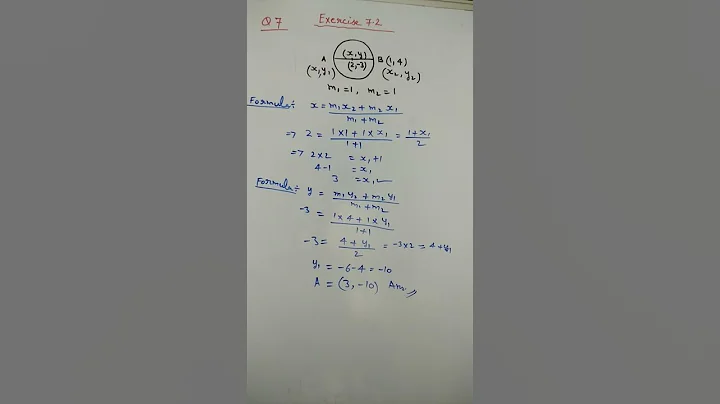 Q7 Exercise 7.2
(x, y)
A B (1, 4)
(2, -3)
(x₁, y₁) (x₂, y₂)
m₁ = 1, m₂ = 1
Formula:- x = m₁x₂ + m₂x₁ / m₁ + m₂
=> 2 = 1×1 + 1×x₁ / 1+1 = 1+x₁ / 2
=> 2×2 = x₁+1
4-1 = x₁
3 = x₁
Formula:- y = m₁y₂ + m₂y₁ / m₁ + m₂
-3 = 1×4 + 1×y₁ / 1+1
-3 = 4 + y₁ / 2 = -3×2 = 4+y₁
y₁ = -6-4 = -10
A = (3, -10) Ans.